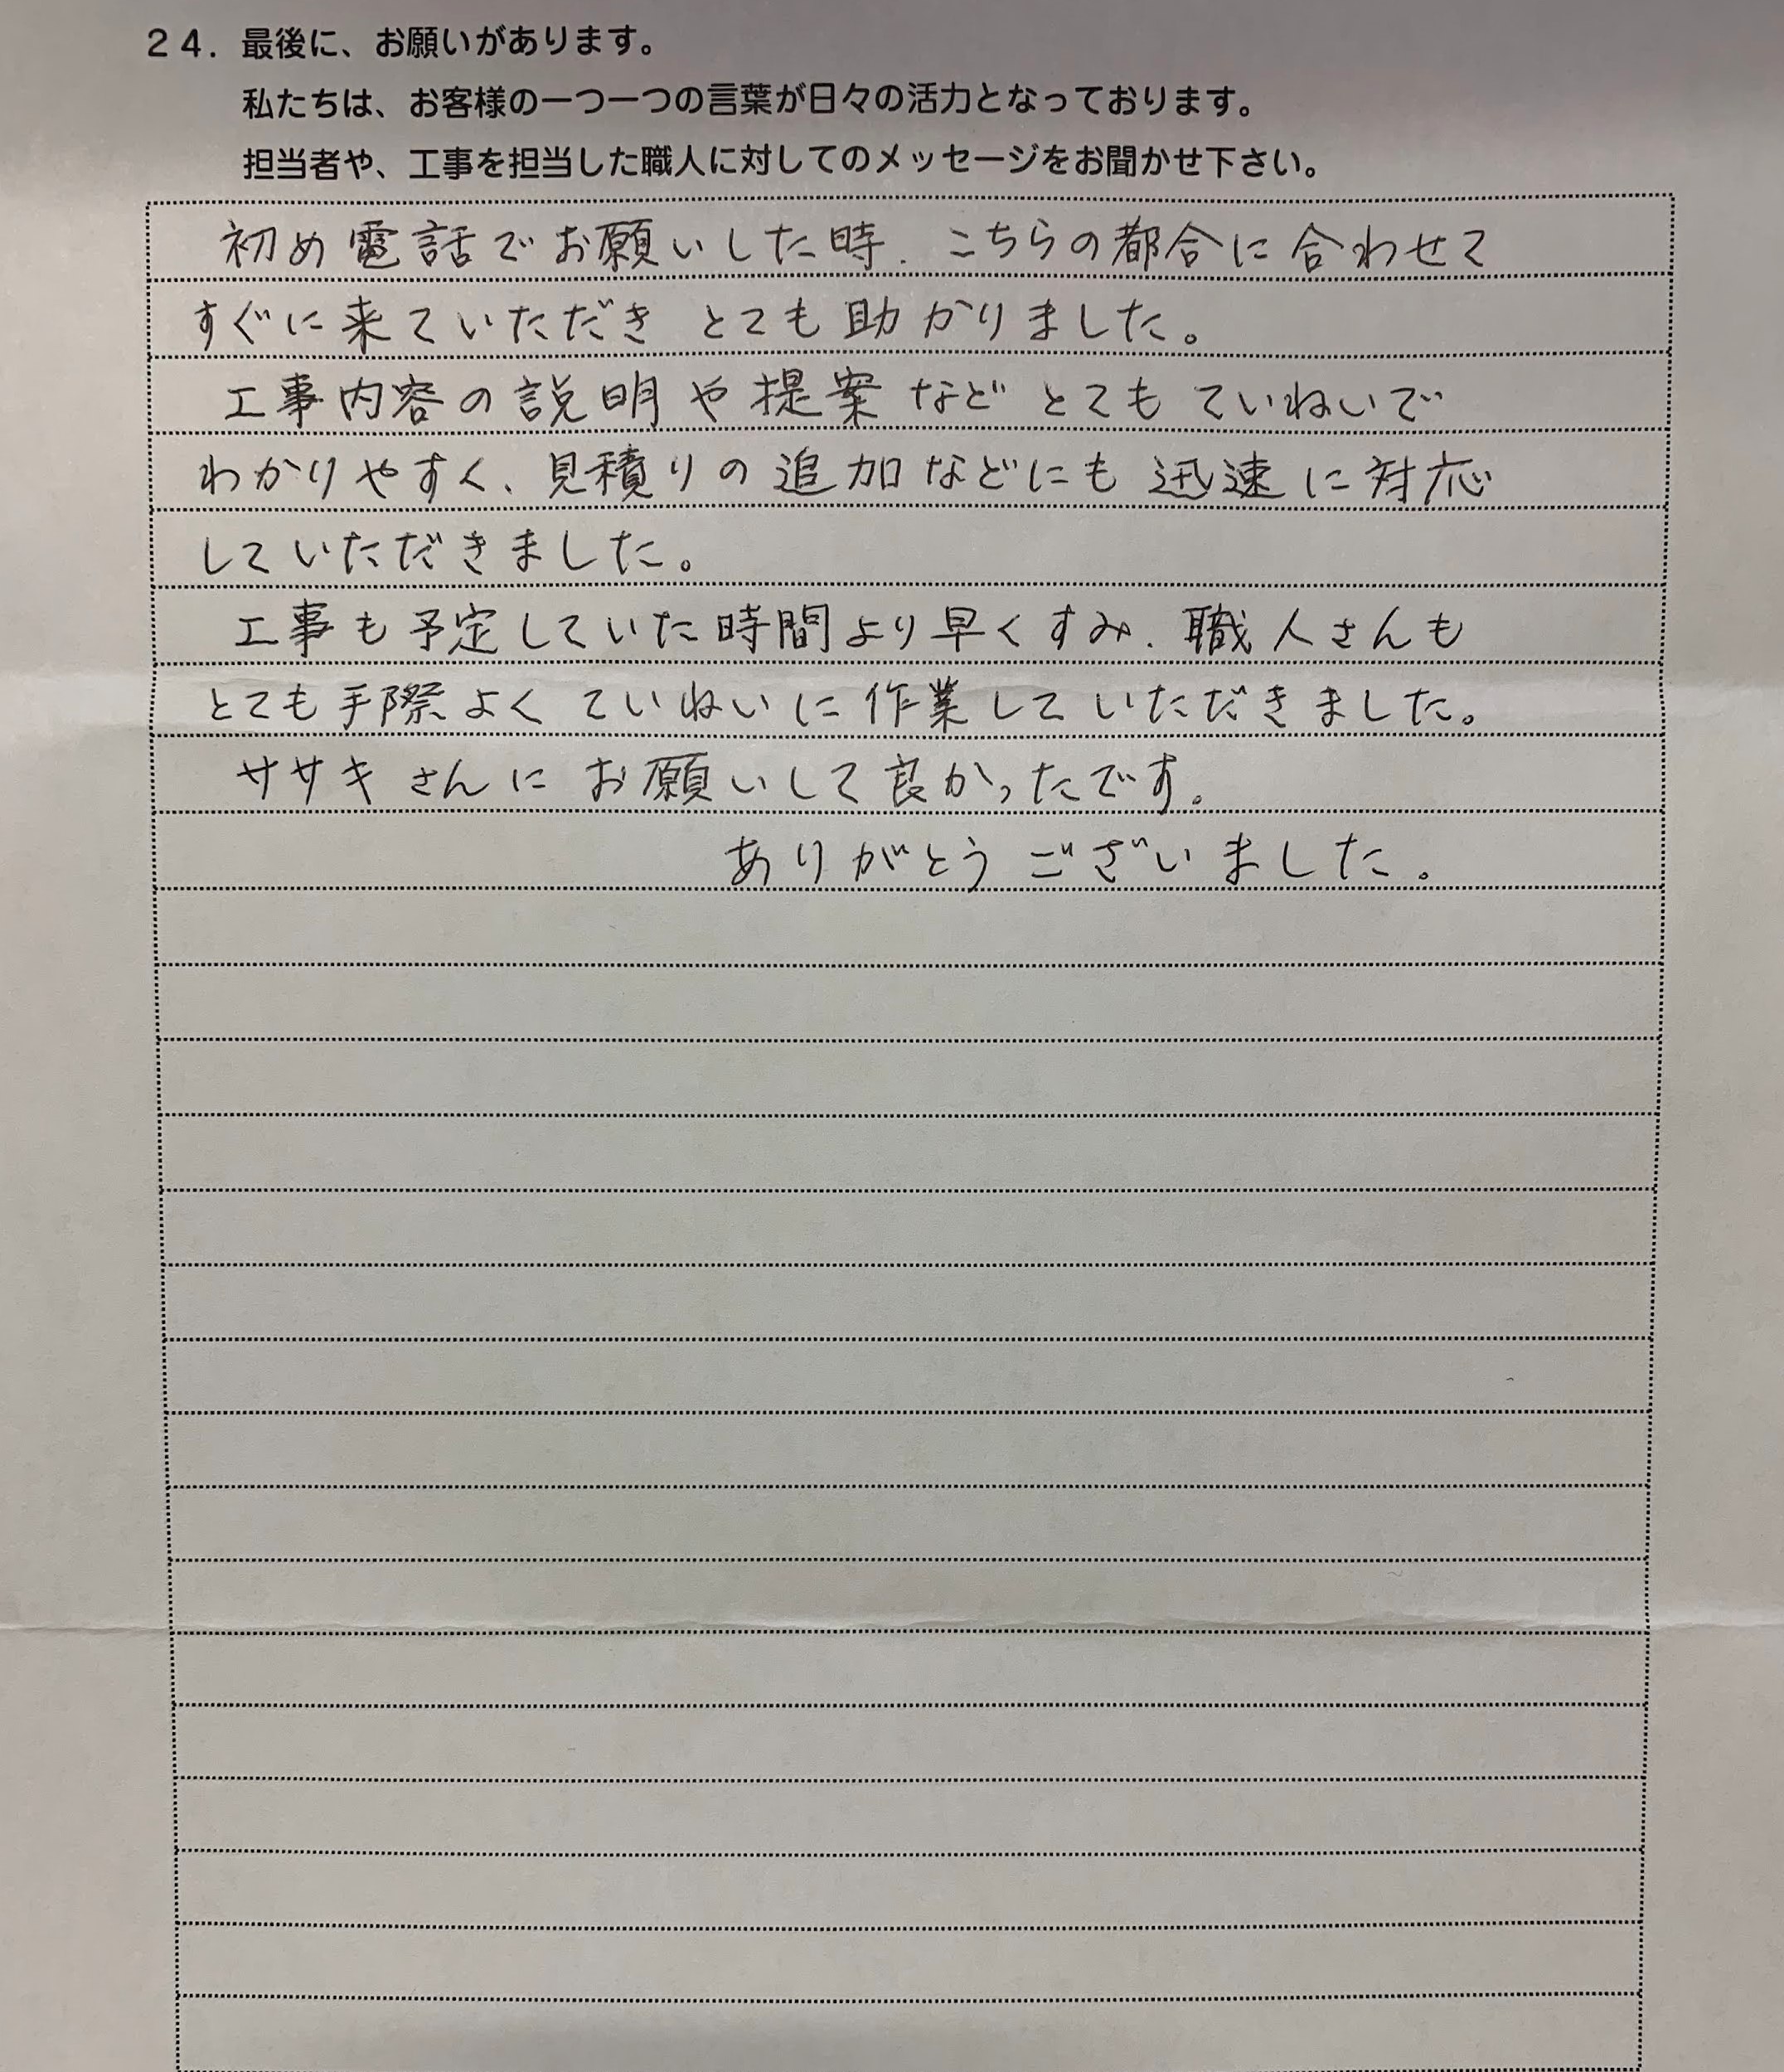 ２４．最後に、お願いがあります。
私たちは、お客様の一つ一つの言葉が日々の活力となっております。
担当者や、工事を担当した職人に対してのメッセージをお聞かせ下さい。
初め電話でお願いした時、こちらの都合に合わせて
すぐに来ていただき とても助かりました。
工事内容の説明や提案など とても ていねいで
わかりやすく、見積りの追加などにも 迅速に対応
していただきました。
工事も予定していた時間より早くすみ、職人さんも
とても手際よく ていねいに作業していただきました。
ササキさんに お願いして良かったです。
ありがとう ございました。